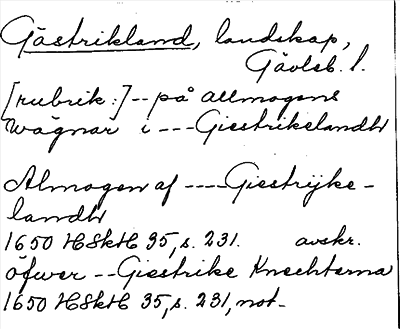 Gästrikland, landskap,
Gävleb. l.
[rubrik:] -- på allmogens
wägnar i --- Giestrikelandh
Almogen af ---- Giestrijke-
landh
1650 HSkH 35, s. 231. avskr.
öfwer -- Giestrike Knechterna
1650 HSkH 35, s. 231, not-